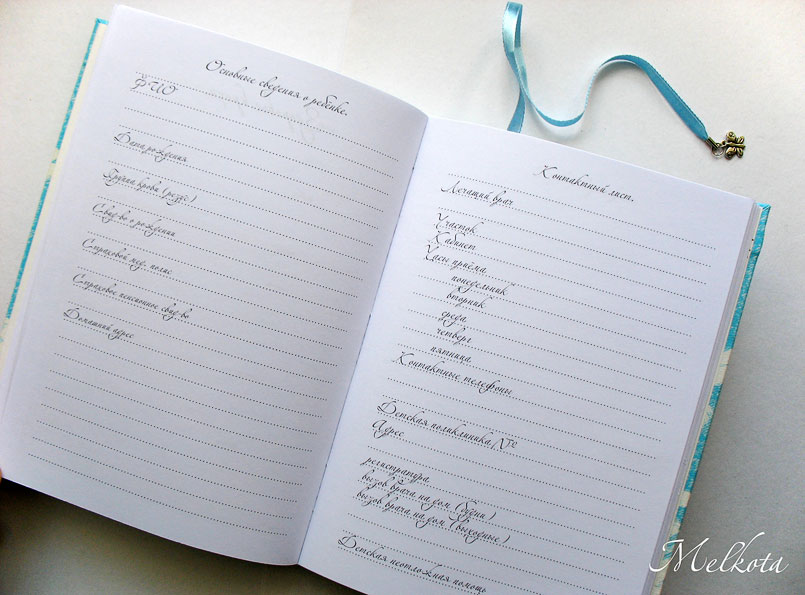 Основные сведения о ребёнке.
ФИО
Дата рождения
Группа крови (резус)
Свид-во о рождении
Страховой мед. полис
Страховое пенсионное свид-во
Домашний адрес
Контактный лист.
Лечащий врач
Участок
Кабинет
Часы приёма
понедельник
вторник
среда
четверг
пятница
Контактные телефоны
Детская поликлиника №
Адрес
регистратура
вызов врача на дом (будни)
вызов врача на дом (выходные)
Детская неотложная помощь
Melkota